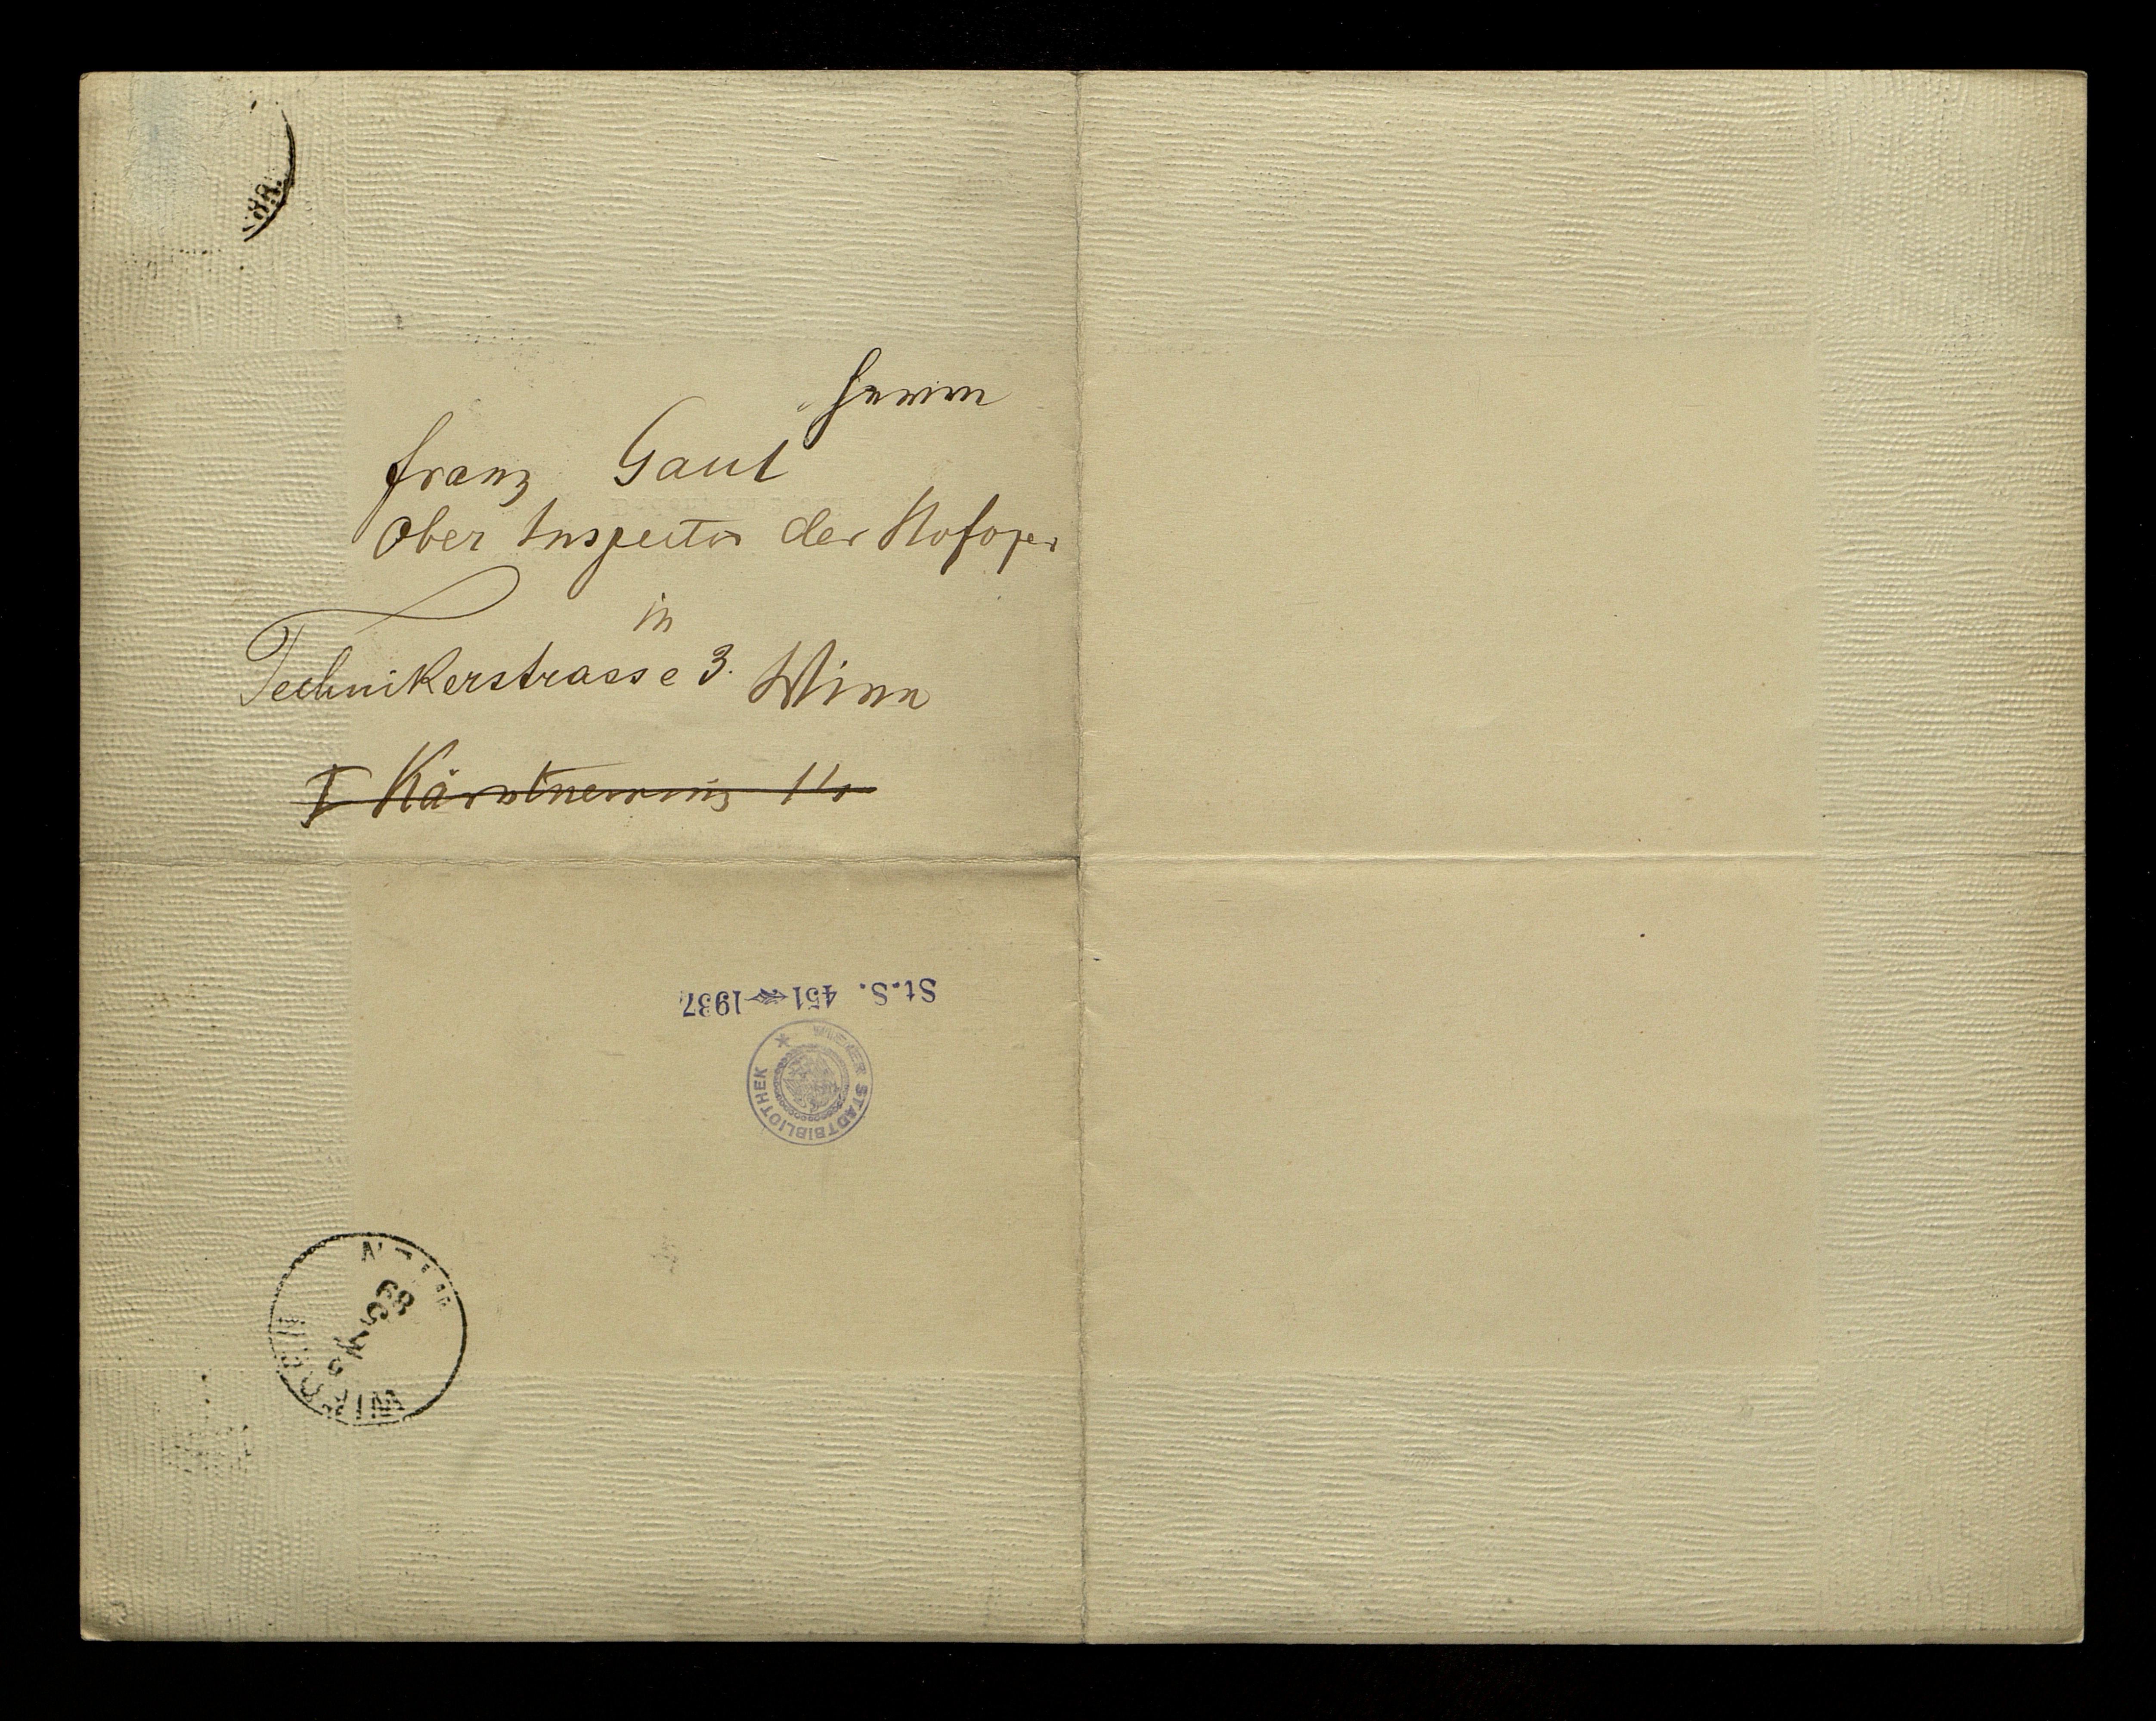 Herrn
Franz Gaul
Ober Inspector der Hofoper
in
Technikerstrasse 3. Wien
I Kärntnerring
St.S. 451 1937
WIENER STADTBIBLIOTHEK
WIEDEN
WIEN